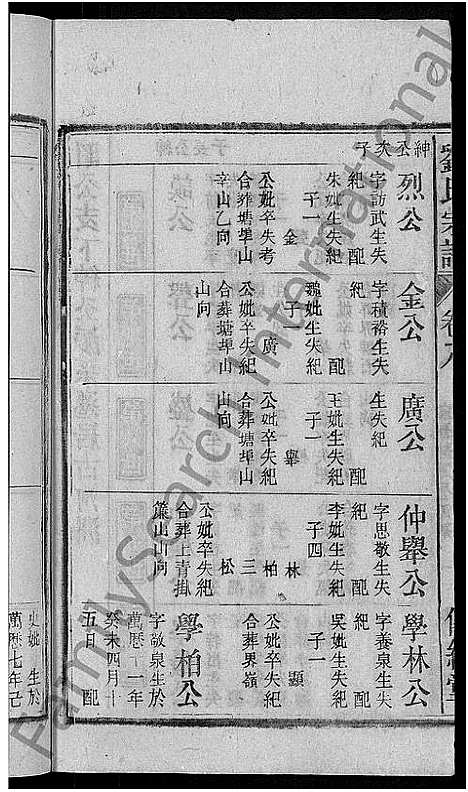 劉氏宗譜
卷八
紳公次子
烈公
字訪武生失
紀 配
朱妣生失紀
子一
金
公妣卒失考
合葬塘埠山
辛山乙向
金公
字積裕生失
紀 配
魏妣生失紀
子一
廣
公妣卒失紀
合葬塘埠山
山向
廣公
生失紀
配
王妣生失紀
子一
舉
公妣卒失紀
合葬塘埠山
山向
仲舉公
字思敬生失
紀 配
李妣生失紀
子四
林
柏
三
松
公妣卒失紀
合葬上青掛
山山向
學林公
字養泉生失
紀 配
吳妣生失紀
子一
顯
公妣卒失紀
合葬界嶺
學柏公
字敬泉生於
萬曆十一年
癸未四月十
五日 配
史妣 生於
萬曆七年己
FamilySearch International